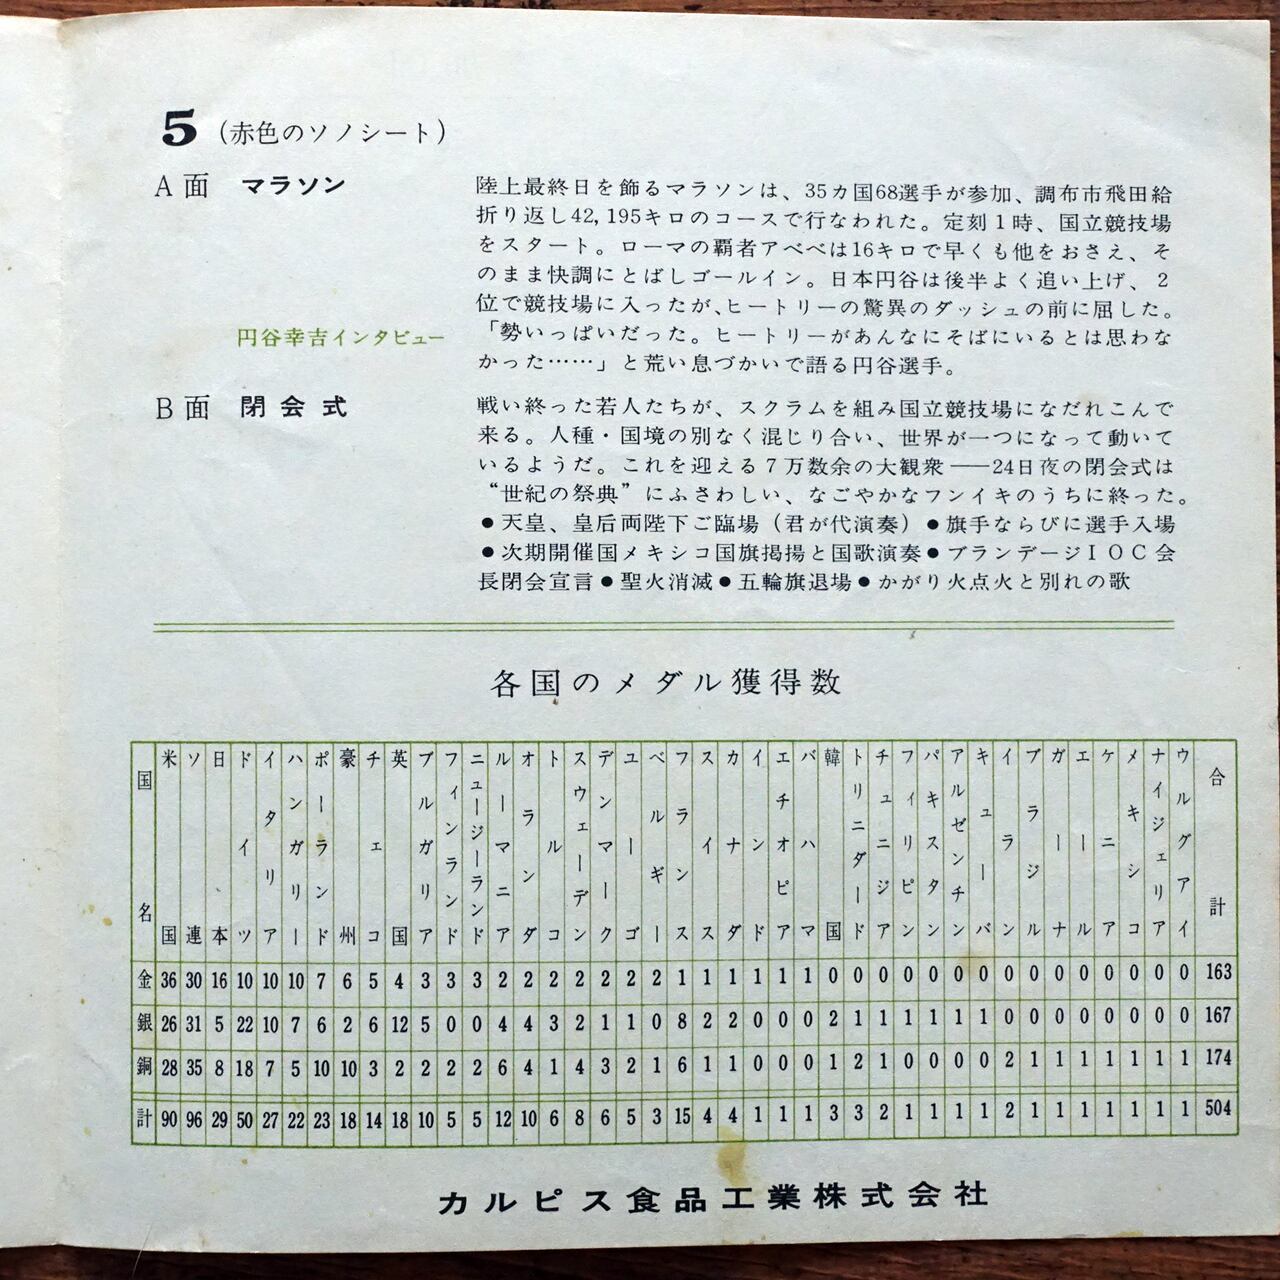 5（赤色のソノシート）
A面　マラソン
陸上最終日を飾るマラソンは、35カ国68選手が参加、調布市飛田給
折り返し42,195キロのコースで行なわれた。定刻1時、国立競技場
をスタート。ローマの覇者アベベは16キロで早くも他をおさえ、そ
のまま快調にとばしゴールイン。日本円谷は後半よく追い上げ、2
位で競技場に入ったが、ヒートリーの驚異のダッシュの前に屈した。
円谷幸吉インタビュー
「勢いっぱいだった。ヒートリーがあんなにそばにいるとは思わな
かった……」と荒い息づかいで語る円谷選手。
B面　閉会式
戦い終った若人たちが、スクラムを組み国立競技場になだれこんで
来る。人種・国境の別なく混じり合い、世界が一つになって動いて
いるようだ。これを迎える7万数余の大観衆――24日夜の閉会式は
“世紀の祭典”にふさわしい、なごやかなフンイキのうちに終った。
●天皇、皇后両陛下ご臨場（君が代演奏）●旗手ならびに選手入場
●次期開催国メキシコ国旗掲揚と国歌演奏●ブランデージIOC会
長閉会宣言●聖火消滅●五輪旗退場●かがり火点火と別れの歌
各国のメダル獲得数
国名 米国 ソ連 日本 ドイツ イタリア ハンガリー ポーランド 豪州 チェコ 英国 ブルガリア フィンランド ニュージーランド ルーマニア オランダ トルコ スウェーデン デンマーク ユーゴ ベルギー フランス スイス カナダ インド エチオピア バハマ 韓国 トリニダード チュニジア フィリピン パキスタン アルゼンチン キューバ イラン ブラジル ガーナ エール ケニア メキシコ ナイジェリア ウルグアイ 合計
金 36 30 16 10 10 10 7 6 5 4 3 3 3 2 2 2 2 2 2 2 1 1 1 1 1 1 0 0 0 0 0 0 0 0 0 0 0 0 0 0 0 163
銀 26 31 5 22 10 7 6 2 6 12 5 0 0 4 4 3 2 1 1 0 8 2 2 0 0 0 2 1 1 1 1 1 1 0 0 0 0 0 0 0 0 167
銅 28 35 8 18 7 5 10 10 3 2 2 2 2 6 4 1 4 3 2 1 6 1 1 0 0 0 1 2 1 0 0 0 0 2 1 1 1 1 1 1 1 174
計 90 96 29 50 27 22 23 18 14 18 10 5 5 12 10 6 8 6 5 3 15 4 4 1 1 1 3 3 2 1 1 1 1 2 1 1 1 1 1 1 1 504
カルピス食品工業株式会社